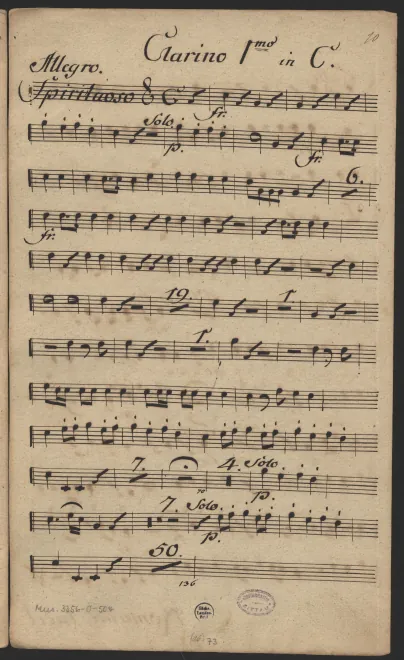 Clarino 1mo in C.
10
Allegro.
Spirituoso
fr.
Solo.
p.
fr.
6.
fr.
19.
1.
1.
7.
4. Solo.
70
p.
7. Solo.
p.
50.
136
73